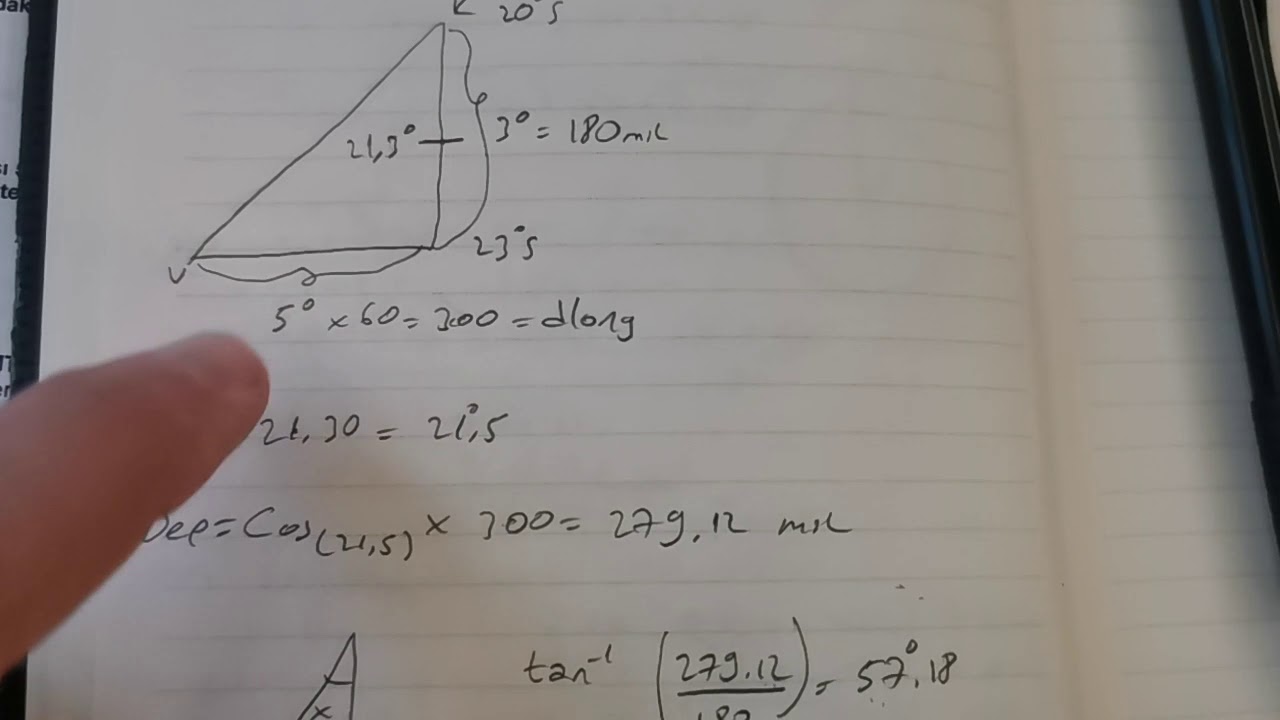 20°S
21,3°
3° = 180 mil
23°S
V
5° x 60 = 300 = dlong
21,30 = 21°,5
Dep = Cos(21,5) x 300 = 279,12 mil
tan⁻¹ (279.12 / 180) = 57°,18
x